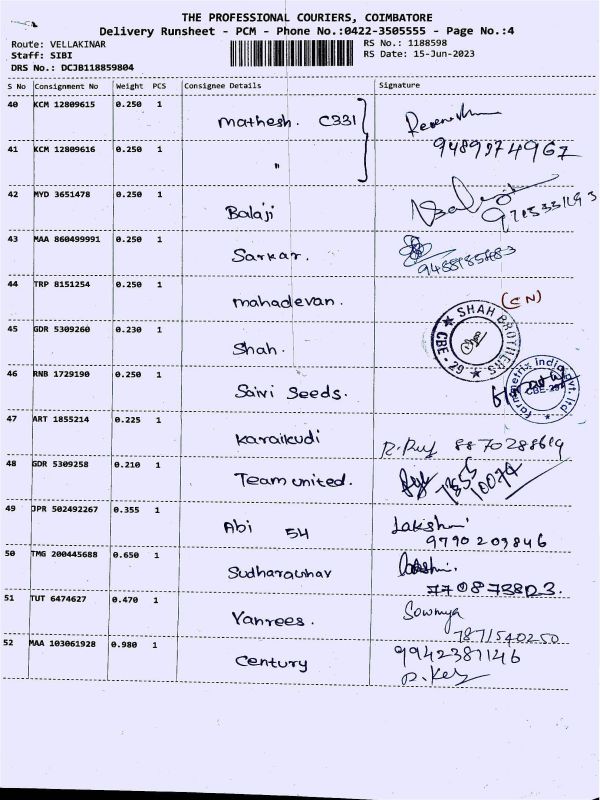 THE PROFESSIONAL COURIERS, COIMBATORE
Delivery Runsheet - PCM - Phone No.:0422-3505555 - Page No.:4
Route: VELLAKINAR
Staff: SIBI
DRS No.: DCJB118859804
RS No.: 1188598
RS Date: 15-Jun-2023
S No Consignment No Weight PCS Consignee Details Signature
40 KCM 12809615 0.250 1 Mathesh. C331
9489974967
41 KCM 12809616 0.250 1 "
42 MYD 3651478 0.250 1 Balaji
43 MAA 860499991 0.250 1 Sarkar.
44 TRP 8151254 0.250 1 mahadevan. (CN)
45 GDR 5309260 0.230 1 Shah. SHAH BROTHERS CBE - 29
46 RNB 1729190 0.250 1 Saivi Seeds.
47 ART 1855214 0.225 1 Karaikudi 8870288619
48 GDR 5309258 0.210 1 Team united.
49 JPR 502492267 0.355 1 Abi 54 Lakshmi
9790209846
50 TMG 200445688 0.650 1
51 TUT 6474627 0.470 1 Vanrees. Sowmya
7871540250
52 MAA 103061928 0.980 1 Century 9942387146